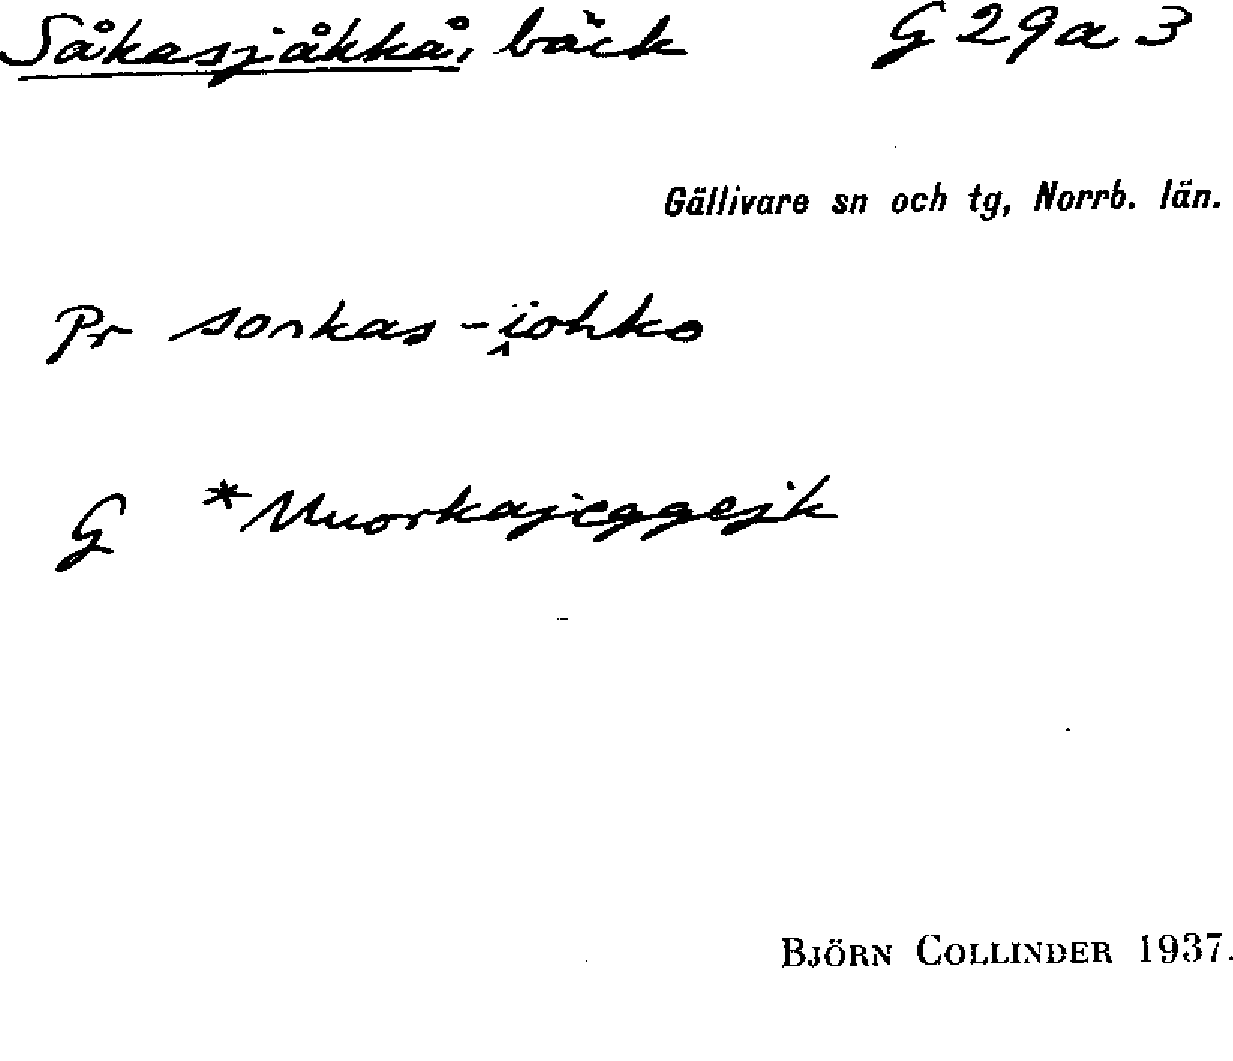 Såkasjåkkå, bäck G 29a 3
Gällivare sn och tg, Norrb. län.
Pr sonkas-i̯ohko
G *Muorkajeggejk
BJÖRN COLLINDER 1937.